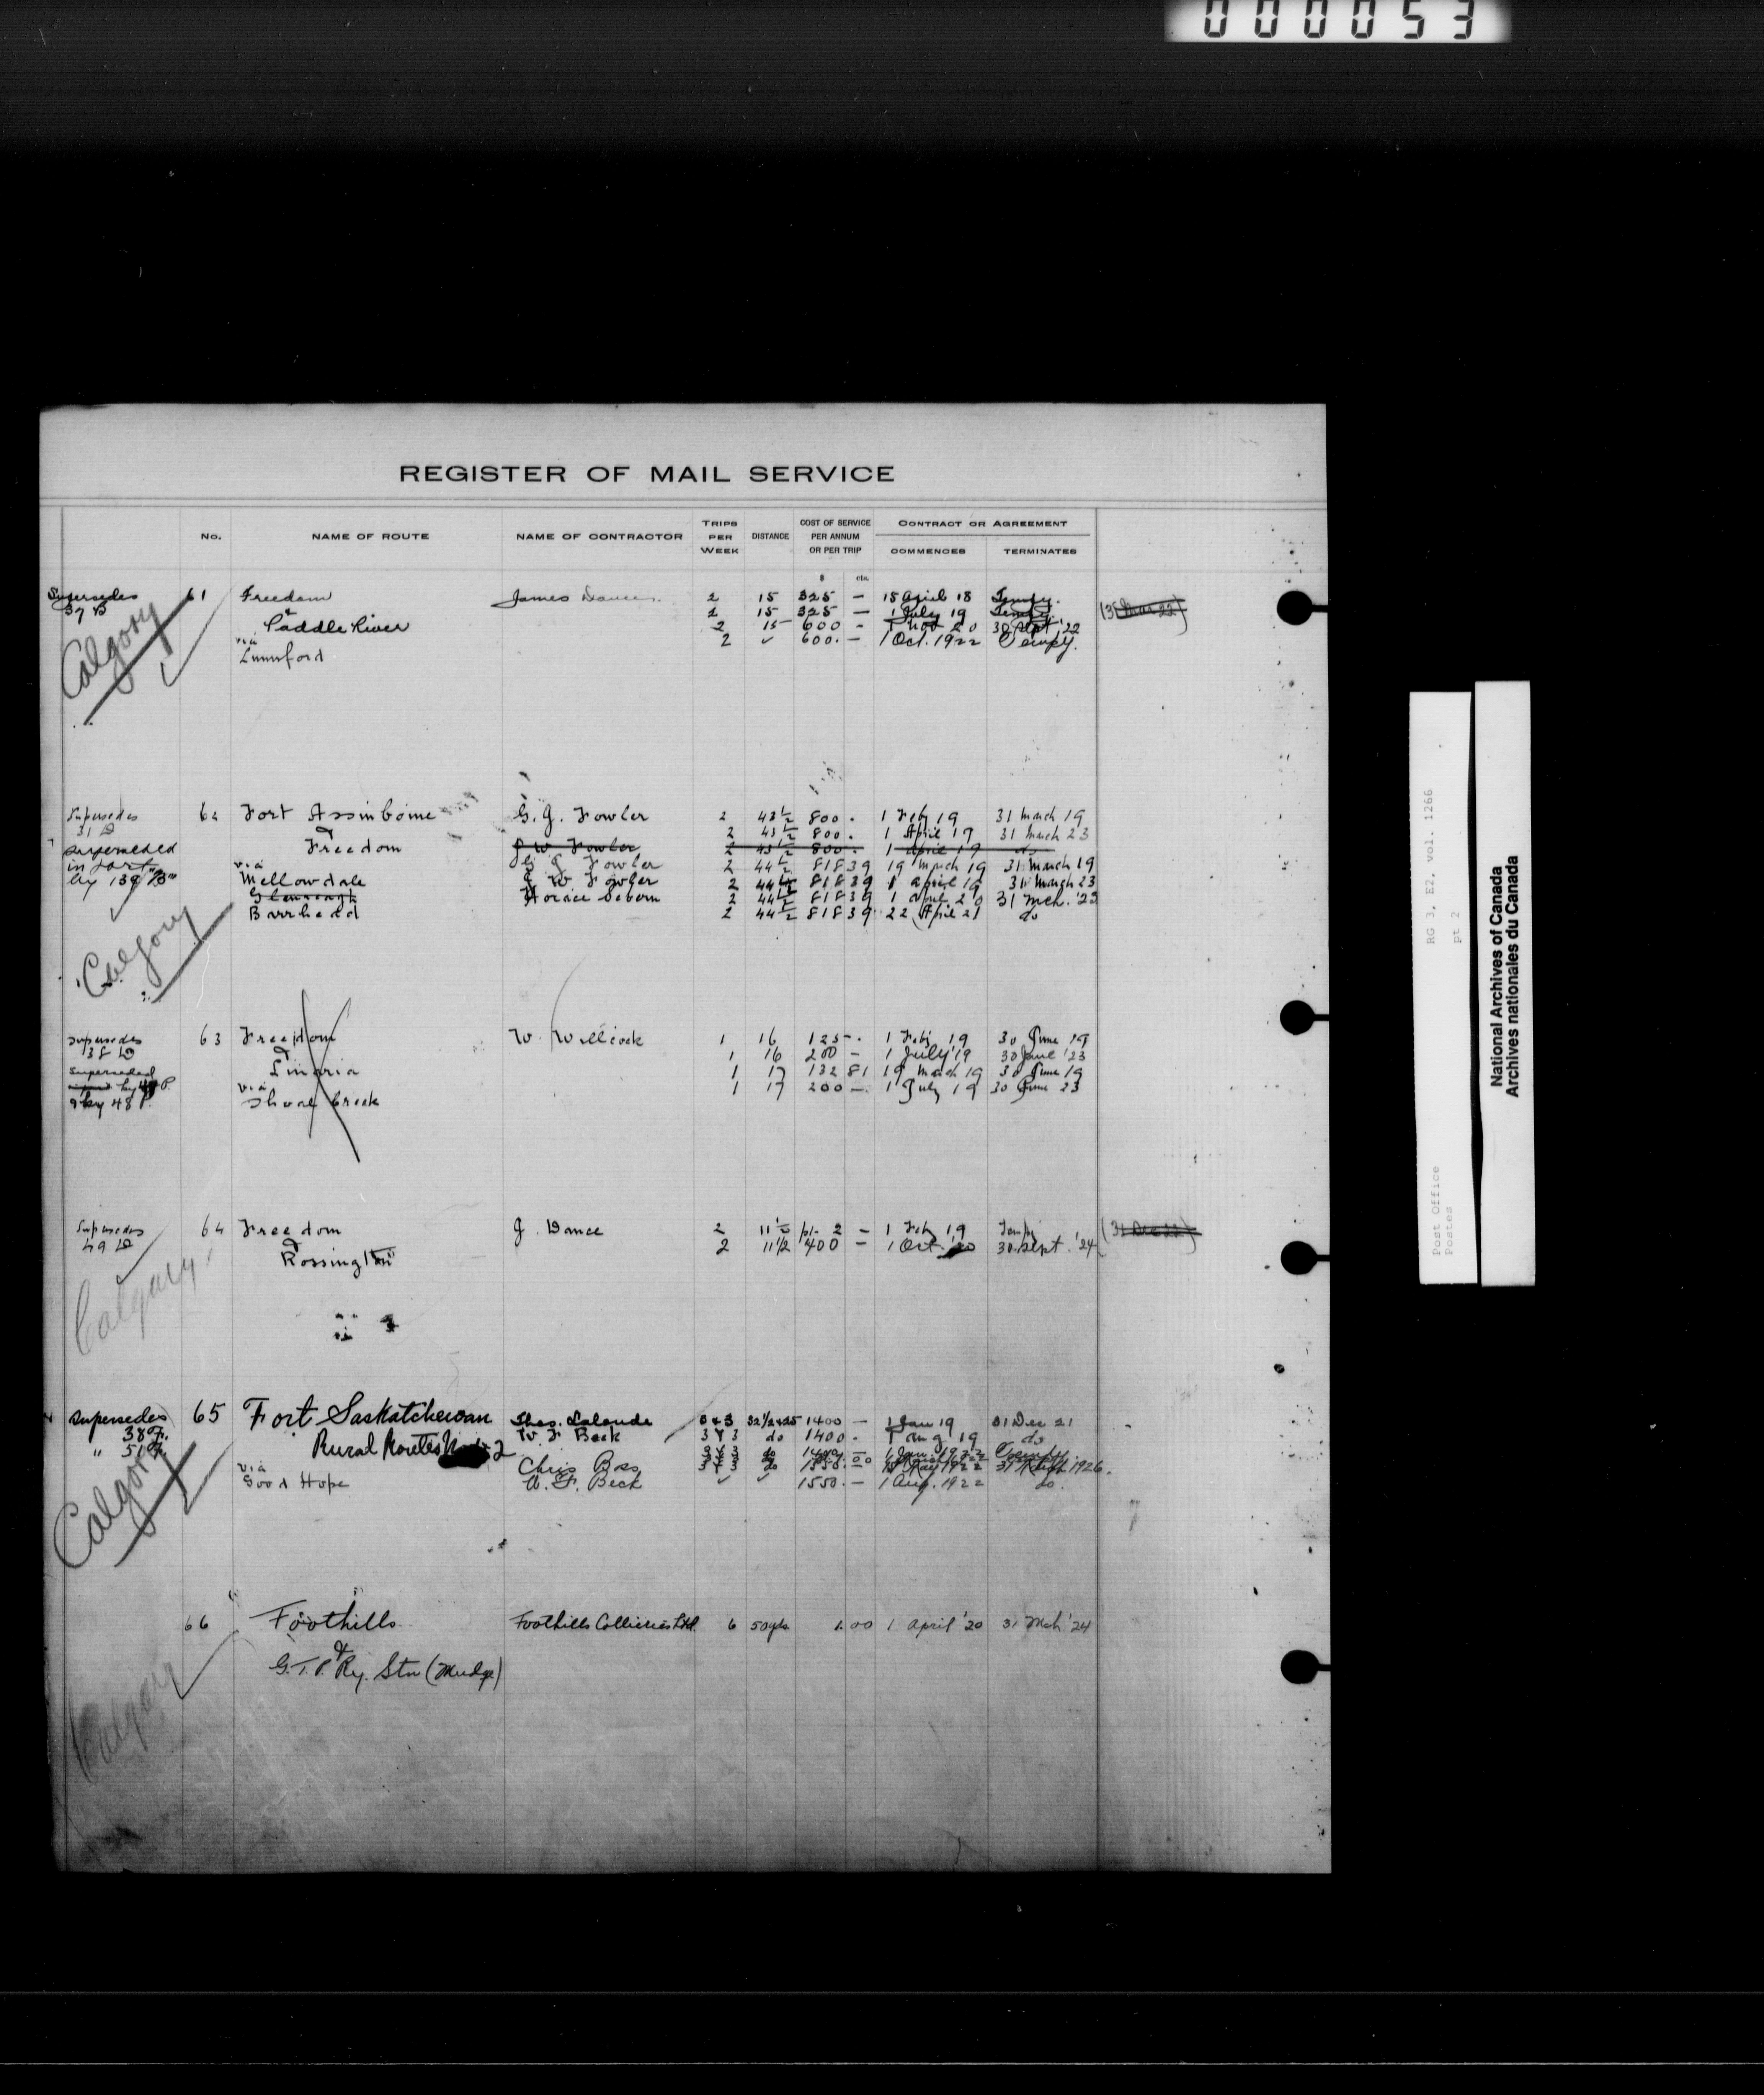 000053
REGISTER OF MAIL SERVICE
No. NAME OF ROUTE NAME OF CONTRACTOR TRIPS PER WEEK DISTANCE COST OF SERVICE PER ANNUM OR PER TRIP CONTRACT OR AGREEMENT
COMMENCES TERMINATES
$ cts.
Supersedes 61 Freedom James 2 15 325 — 15 April 18 Tempy.
37 B & 2 15 325 — 1 July 19 Tempy.
Paddle River 2 15 600 — 1 Nov 20 30 Sept '22
via 2 ✓ 600. — 1 Oct. 1922 Tempy.
Lunnford
Calgary
Supersedes 62 Fort Assiniboine G. J. Fowler 2 43 1/2 800 . 1 Feby 19 31 March 19
31 D & 2 43 1/2 800 . 1 April 19 31 March 23
Superseded Freedom J W Fowler 2 43 1/2 800 . 1 April 19 do
in part via G J Fowler 2 44 1/2 818 39 19 March 19 31 March 19
by 139 "B" Mellowdale J W Fowler 2 44 1/2 818 39 1 April 19 31 March 23
Horace 2 44 1/2 818 39 1 April 20 31 Mch. '23
Barrhead 2 44 1/2 818 39 22 April 21 do
Calgary
Supersedes 63 Freedom W. Willcock 1 16 125 . 1 Feby 19 30 June 19
38 D & 1 16 200 — 1 July '19 30 June '23
Superseded Linaria 1 17 132 81 19 March 19 30 June 19
via 1 17 200 — 1 July 19 30 June 23
by 48 P. Shoal Creek
Supersedes 64 Freedom J. Dance 2 11 1/2 2 — 1 Feby 19 Tempy (31 Dec 22)
49 D & 2 11 1/2 400 — 1 Oct. '20 30 Sept. '24
Rossington
Calgary
Supersedes 65 Fort Saskatchewan Thos. Lalonde 3 & 3 32 1/2 & 25 1400 — 1 Jan 19 31 Dec 21
38 Rural Routes 2 W. F. Beck 3 & 3 do 1400 . 1 Aug 19 do
" 51
via Chris Ross 3 & 3 do 1550. 1922 1926.
Good Hope W. F. Beck ✓ ✓ 1550. — 1 Aug. 1922 do.
Calgary
66 Foothills Foothills Collieries Ltd. 6 50 yds. 1.00 1 April '20 31 Mch '24
&
G.T.P. Ry. Stn (Mudge)
Calgary
RG 3, E2, vol. 1266
pt 2
Post Office
Postes
National Archives of Canada
Archives nationales du Canada